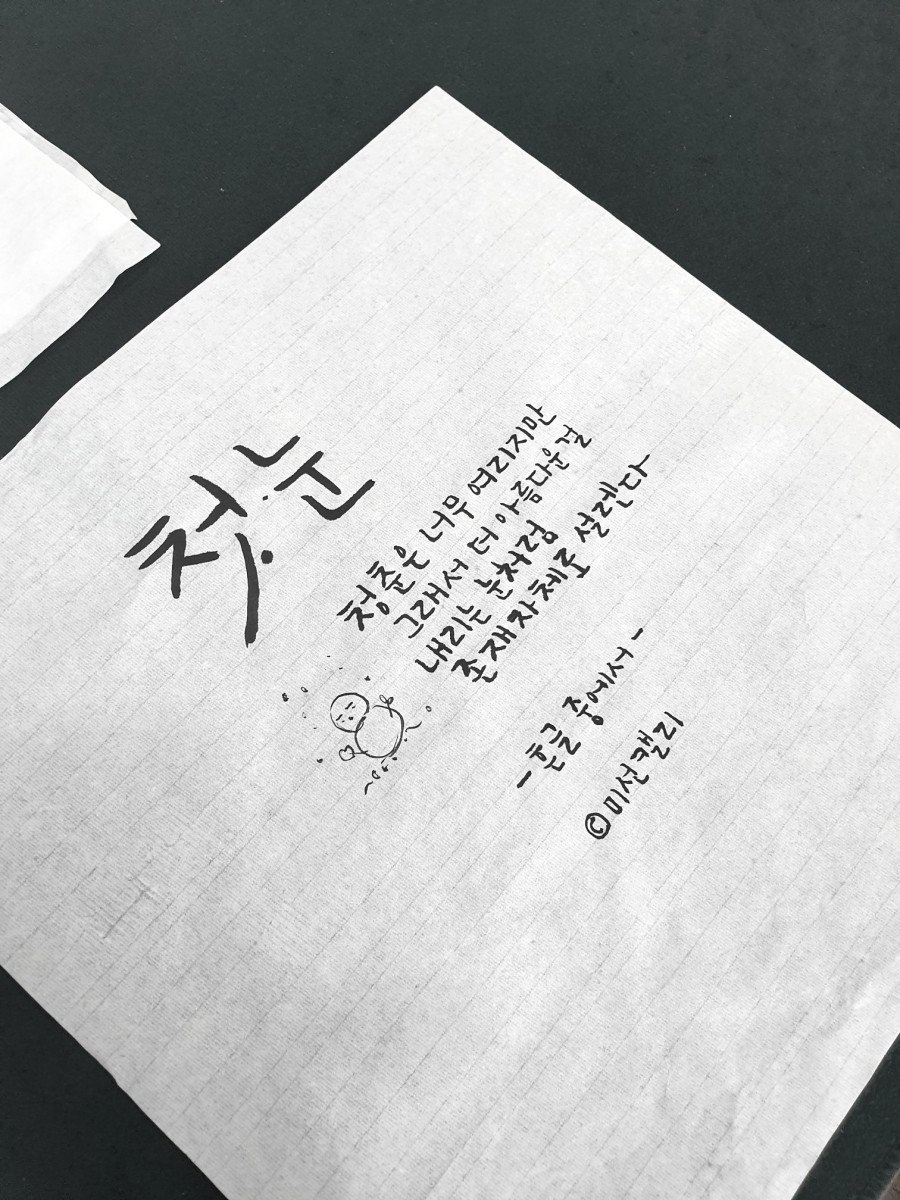 첫눈
청춘은 너무 여리지만
그래서 더 아름다운걸
내리는 눈처럼
존재자체로 설렌다
- 흔글 중에서 -
©미선캘리